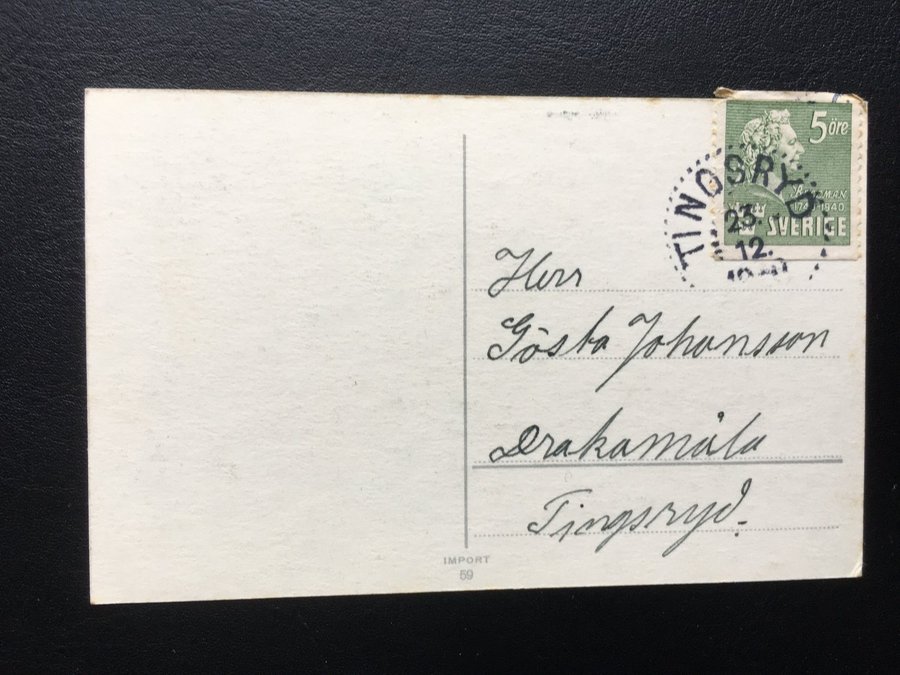 5 öre
BELLMAN
1740-1940
SVERIGE
TINGSRYD
23.
12.
Herr
Gösta Johansson
Drakamåla
Tingsryd.
IMPORT
59